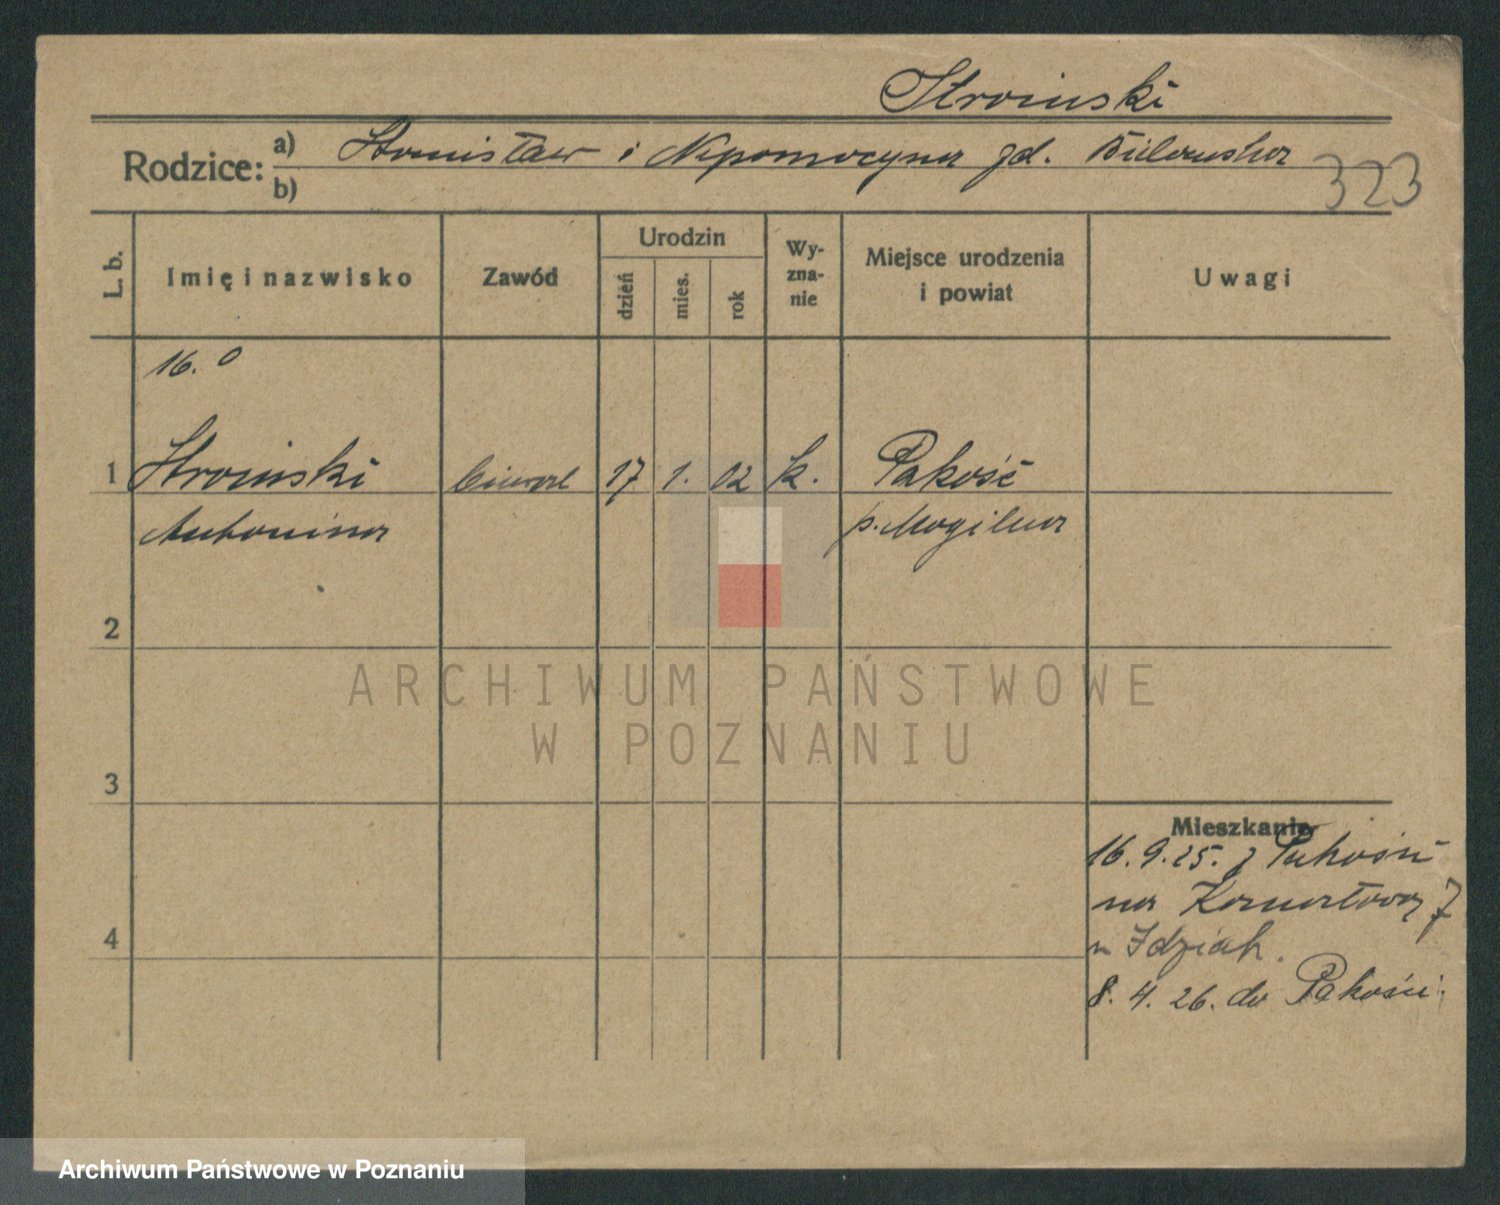 Stroinski
Rodzice: a) Stanisław i Nepomocyna zd. Bielawska
b)
323
L. b.
Imię i nazwisko
Zawód
Urodzin
dzień
mies.
rok
Wy-
zna-
nie
Miejsce urodzenia
i powiat
Uwagi
16.0
1 Stroinski 17 1. 02 k. Pakość
Antonina p. Mogilna
2
3
4
Mieszkanie
16.9.25. z Pakości
na 7
u Idziak.
8. 4. 26. do Pakości
ARCHIWUM PAŃSTWOWE
W POZNANIU
Archiwum Państwowe w Poznaniu